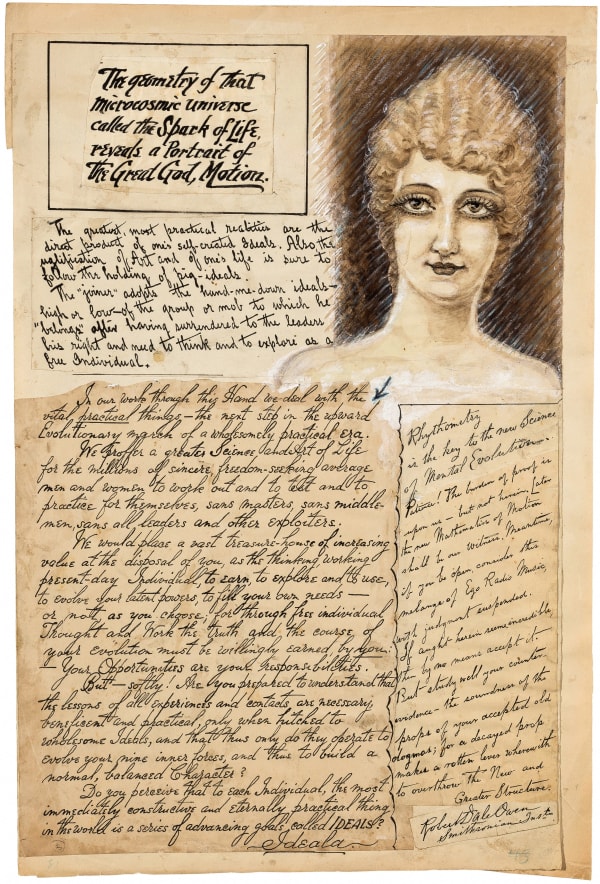 The geometry of that
microcosmic universe
called the Spark of Life,
reveals a Portrait of
the Great God, Motion.
The greatest, most practical realities are the
direct product of one's self-created Ideals. Also the
justification of Art and of one's life is sure to
follow the holding of big-ideals.
The "joiner" adopts the hand-me-down ideals—
high or low—of the group or mob to which he
"belongs" after having surrendered to the leaders
his right and need to think and to explore as a
free Individual.
In our work through this Hand we deal with the
vital practical things—the next step in the upward
Evolutionary march of a wholesomely practical era.
We proffer a greater Science and Art of Life
for the millions of sincere, freedom-seeking average
men and women to work out and to test and to
practice for themselves, sans masters, sans middle-
men, sans all leaders and other exploiters.
We would place a vast treasure-house of increasing
value at the disposal of you, as the thinking, working
present-day Individual, to earn, to explore and to use,
to evolve your latent powers, to fill your own needs—
or not, as you choose; for through free individual
Thought and Work the truth and the course of
your evolution must be willingly earned, by you:
—Your Opportunities are your responsibilities.
But—softly. Are you prepared to understand that
the lessons of all experiences and contacts, are necessary,
beneficent and practical, only when hitched to
wholesome Ideals, and that thus only do they operate to
evolve your nine inner forces, and thus to build a
normal, balanced Character?
Do you perceive that to each Individual, the most
immediately constructive and eternally practical thing
in the world is a series of advancing goals, called IDEALS?
—Ideala—
Rhythometry
is the key to the new Science
of Mental Evolution.
Patience! The burden of proof is
upon us—but not herein. Later
the new Mathematics of Motion
shall be our Witness. Meantime,
if you be open, consider this
melange of Ego Radio Music,
with judgment suspended.
If aught herein seem incredible
then by no means accept it—
But study well your counter-
evidence—the soundness of the
props of your accepted old
dogmas; for a decayed prop
makes a rotten lever wherewith
to overthrow the New and
Greater Structure.
Robert Dale Owen
Smithsonian Inst.